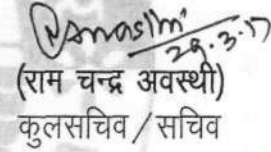 29.3.17
(राम चन्द्र अवस्थी)
कुलसचिव / सचिव